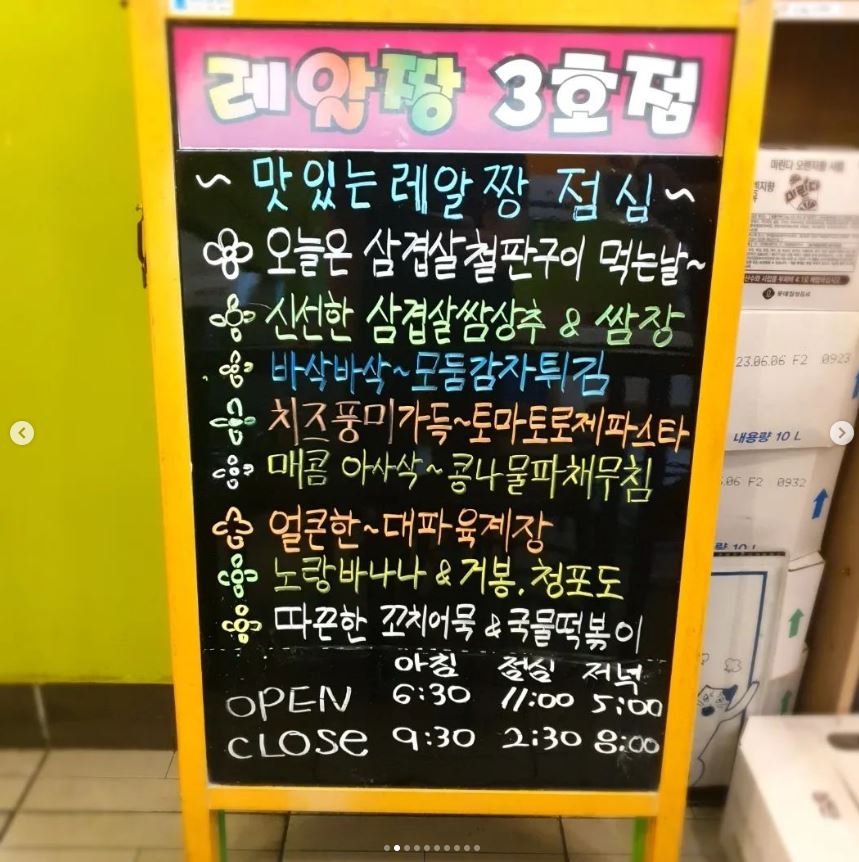 레알짱 3호점
~ 맛있는 레알짱 점심 ~
오늘은 삼겹살철판구이 먹는날~
신선한 삼겹살쌈상추 & 쌈장
바삭바삭~모둠감자튀김
치즈풍미가득~토마토로제파스타
매콤 아사삭~콩나물파채무침
얼큰한~대파육계장
노랑바나나 & 거봉.청포도
따끈한 꼬치어묵 & 국물떡볶이
아침 점심 저녁
OPEN 6:30 11:00 5:00
CLOSE 9:30 2:30 8:00
미린다
23.06.06 F2 0923
내용량 10 L
.06 F2 0932
량 10 L